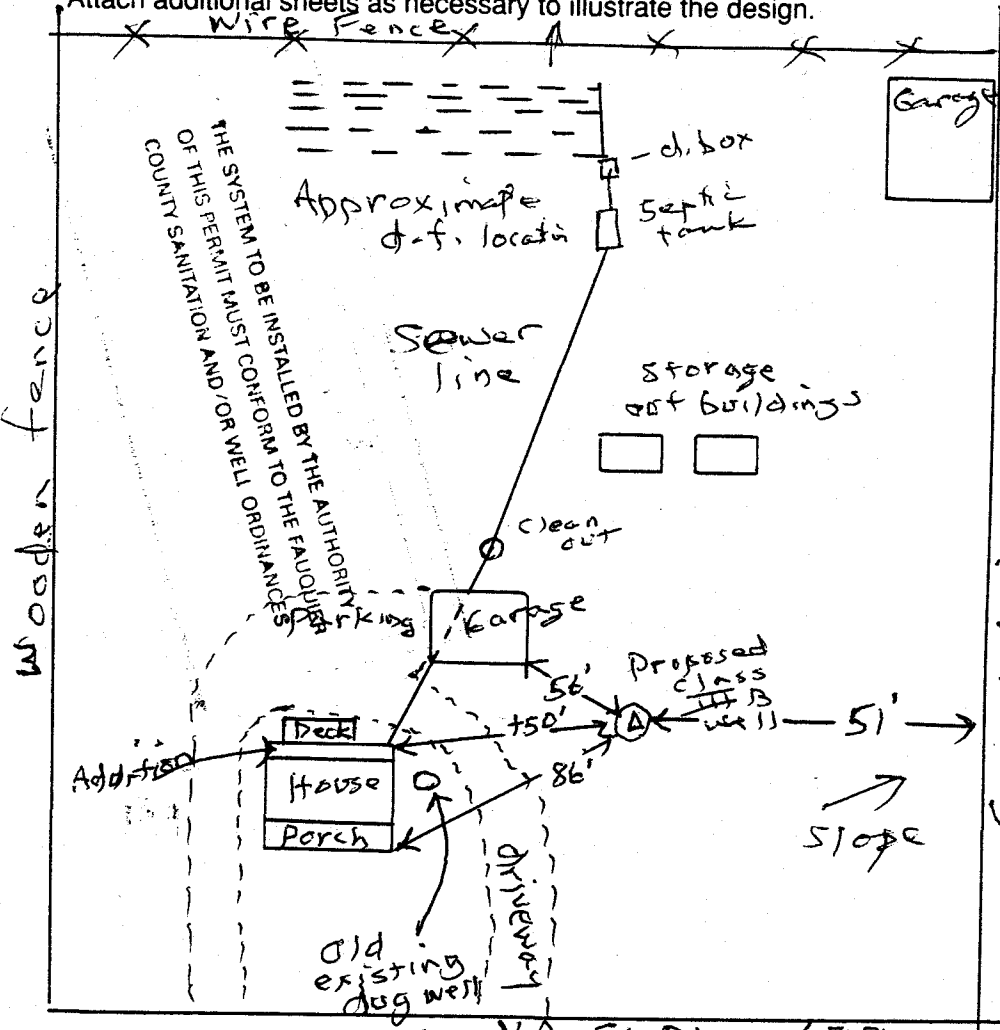 Attach additional sheets as necessary to illustrate the design.
Wire Fence
Garage
d.box
Septic
tank
Approximate
d.f. locatin
THE SYSTEM TO BE INSTALLED BY THE AUTHORITY
OF THIS PERMIT MUST CONFORM TO THE FAUQUIER
COUNTY SANITATION AND/OR WELL ORDINANCES
Wooden fence
Sewer
line
Storage
out buildings
Clean
out
Parking
Garage
Proposed
class
III B
well
56'
+50'
51'
86'
Deck
Addition
House
Porch
Slope
driveway
Old
existing
dug well